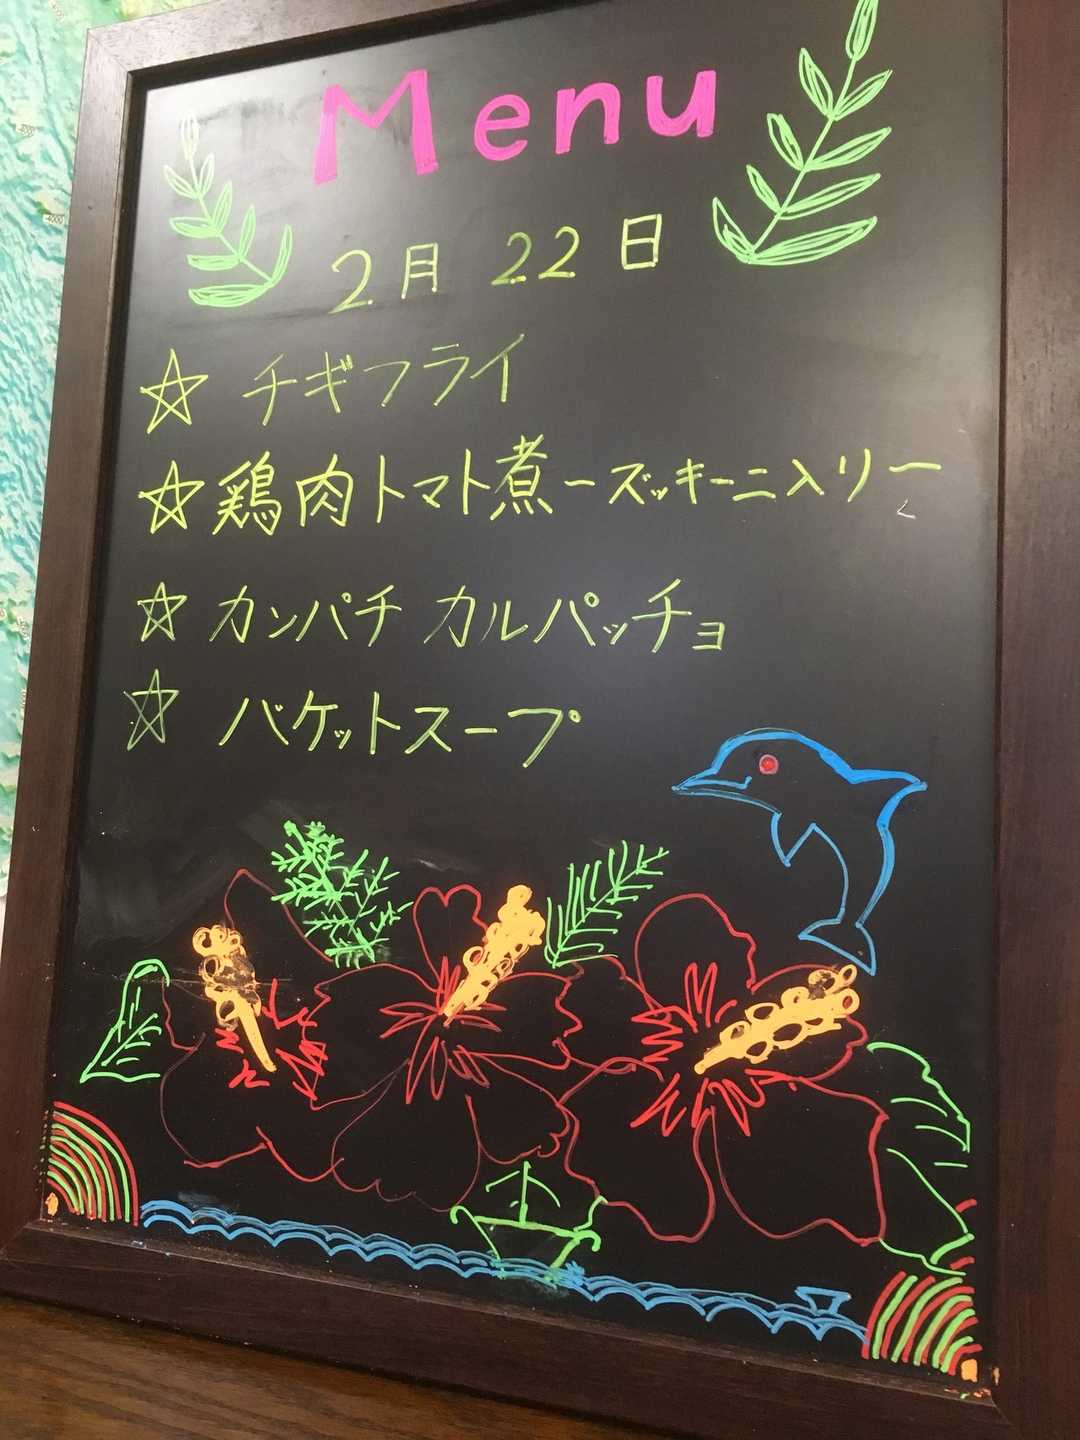 Menu
2月 22日
☆ チギフライ
☆ 鶏肉トマト煮ーズッキーニ入リー
☆ カンパチ カルパッチョ
☆ バケットスープ